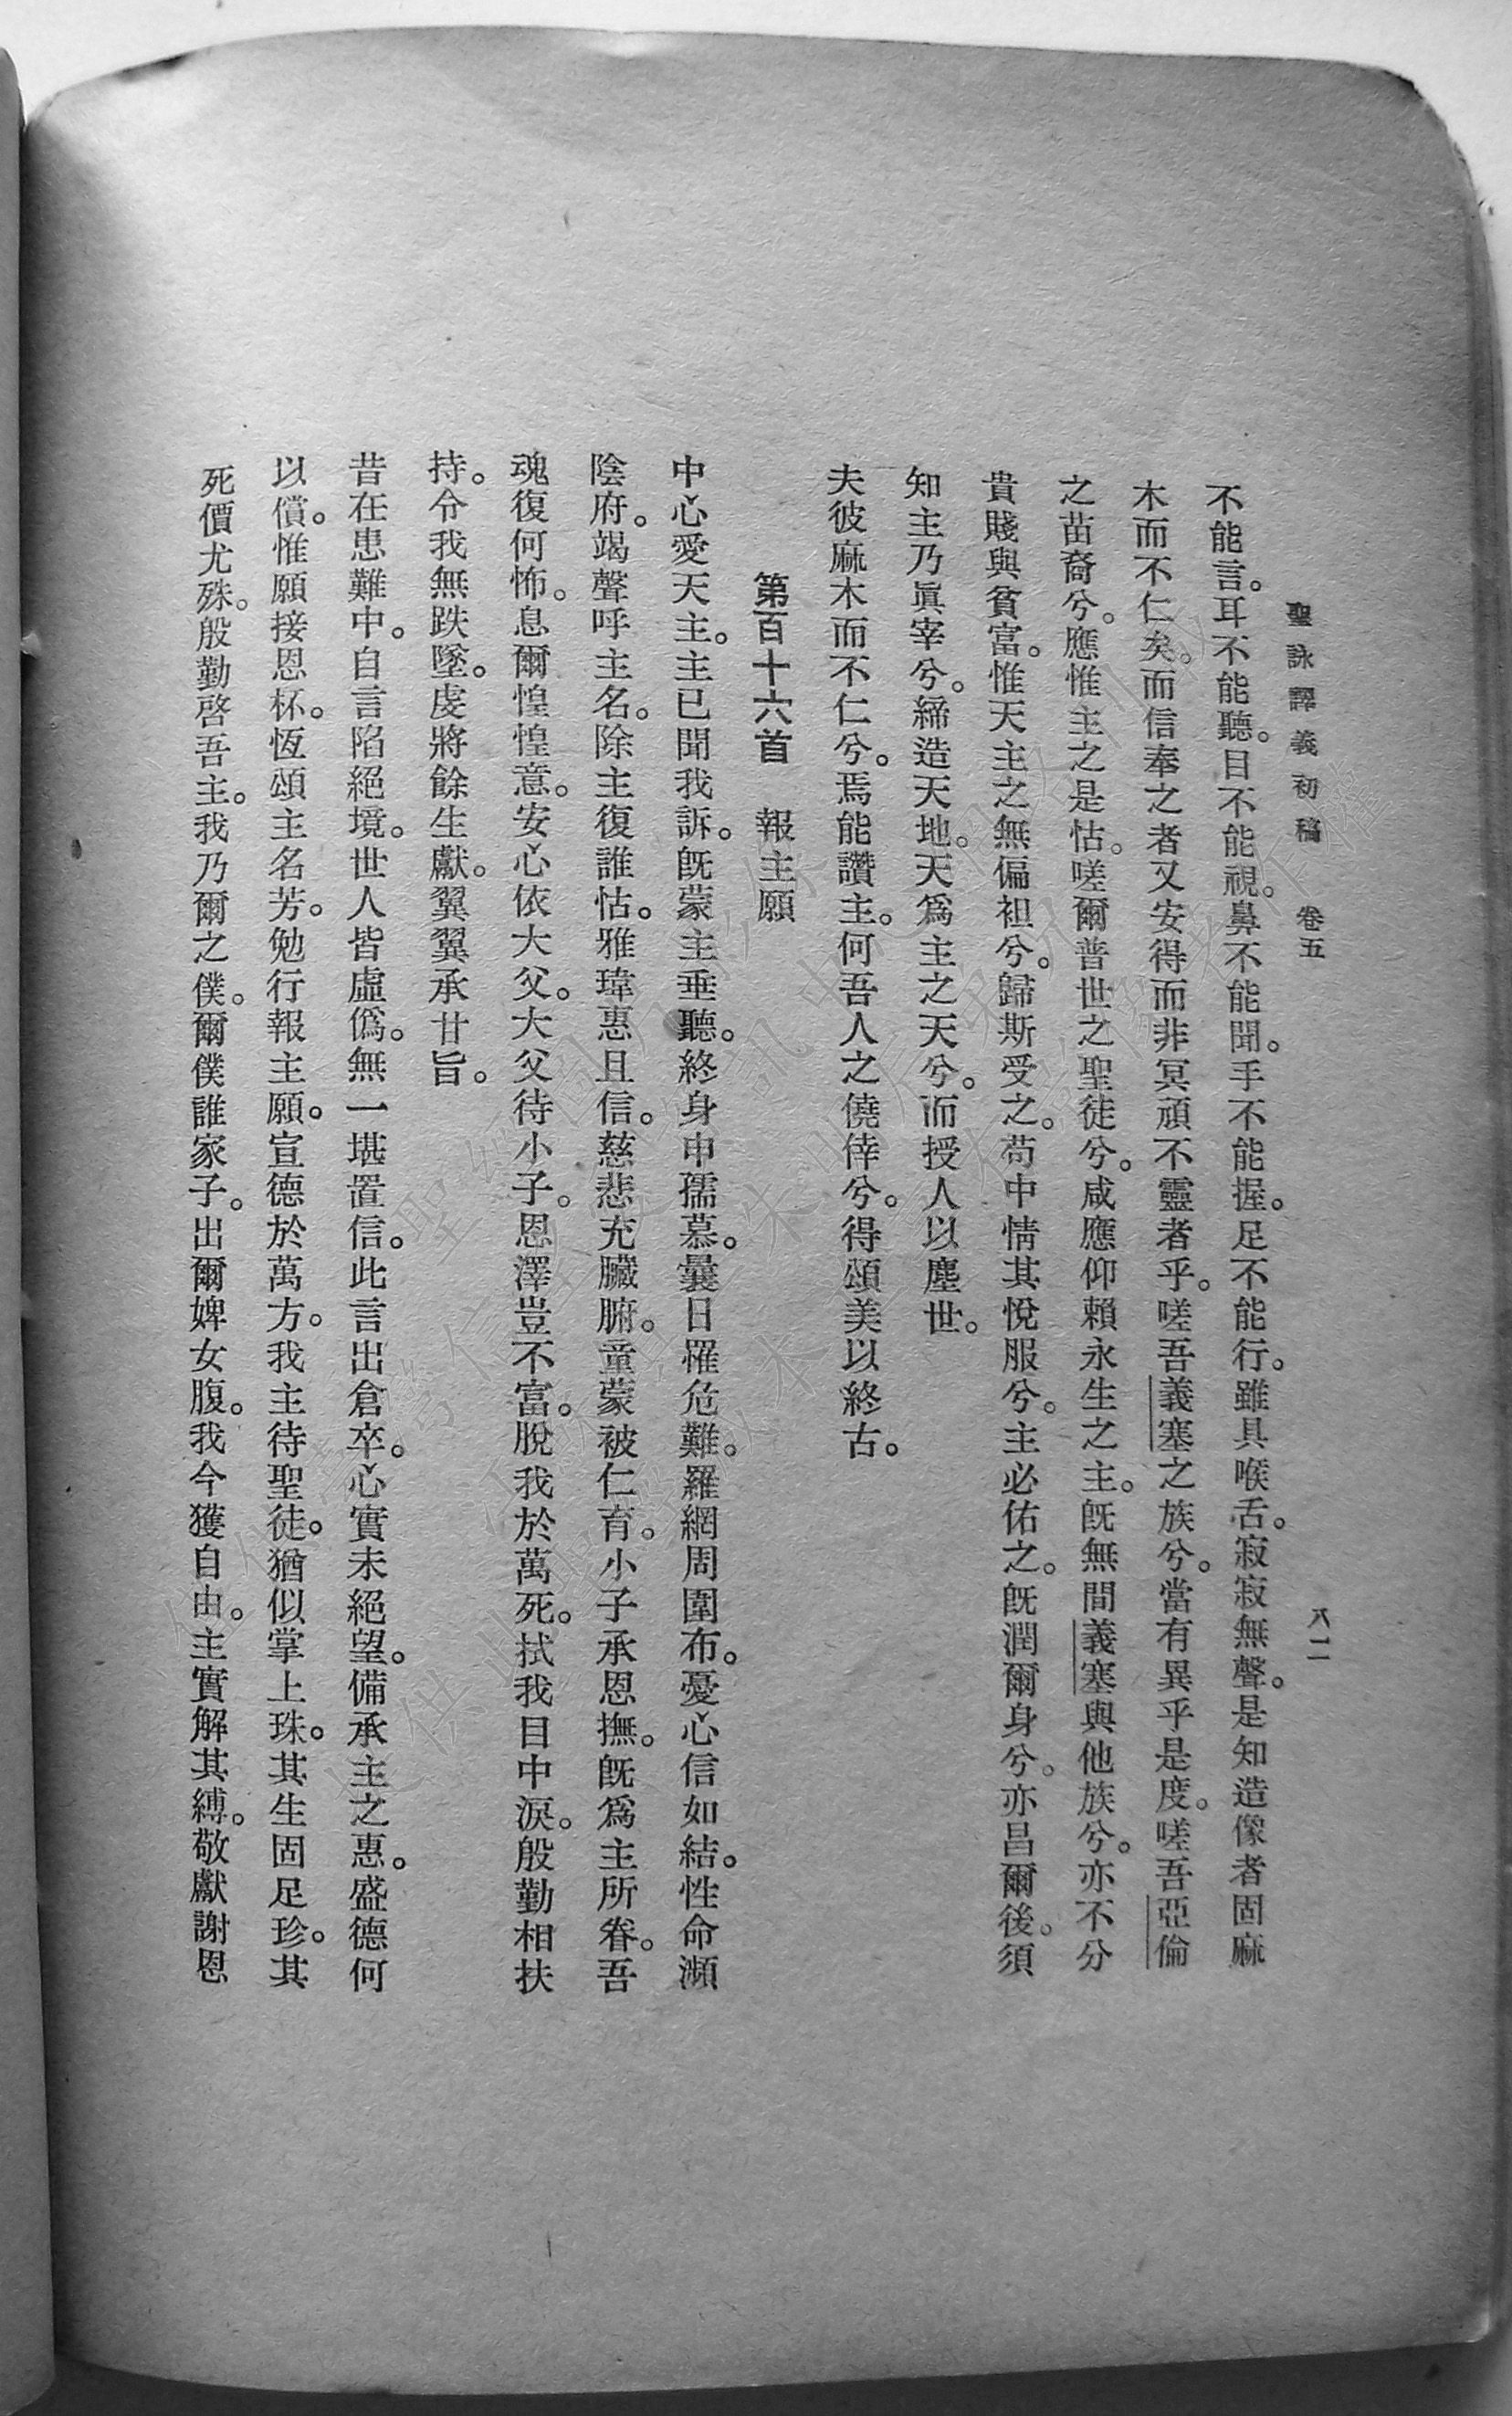 聖詠譯義初稿　卷五　八二
不能言。耳不能聽。目不能視。鼻不能聞。手不能握。足不能行。雖具喉舌。寂寂無聲。是知造像者固麻
木而不仁矣。而信奉之者又安得而非冥頑不靈者乎。嗟吾義塞之族兮。當有異乎是度。嗟吾亞倫
之苗裔兮。應惟主之是怙。嗟爾普世之聖徒兮。咸應仰賴永生之主。旣無間義塞與他族兮。亦不分
貴賤與貧富。惟天主之無偏袒兮。歸斯受之。苟中情其悅服兮。主必佑之。旣潤爾身兮。亦昌爾後。須
知主乃眞宰兮。締造天地。天爲主之天兮。而授人以塵世。
夫彼麻木而不仁兮。焉能讚主。何吾人之僥倖兮。得頌美以終古。
第百十六首　報主願
中心愛天主。主已聞我訴。旣蒙主垂聽。終身申孺慕。曩日罹危難。羅網周圍布。憂心信如結。性命瀕
陰府。竭聲呼主名。除主復誰怙。雅瑋惠且信。慈悲充臟腑。童蒙被仁育。小子承恩撫。旣爲主所眷。吾
魂復何怖。息爾惶惶意。安心依大父。大父待小子。恩澤豈不富。脫我於萬死。拭我目中淚。殷勤相扶
持。令我無跌墜。虔將餘生獻。翼翼承甘旨。
昔在患難中。自言陷絕境。世人皆虛僞。無一堪置信。此言出倉卒。心實未絕望。備承主之惠。盛德何
以償。惟願接恩杯。恆頌主名芳。勉行報主願。宣德於萬方。我主待聖徒。猶似掌上珠。其生固足珍。其
死價尤殊。殷勤啓吾主。我乃爾之僕。爾僕誰家子。出爾婢女腹。我今獲自由。主實解其縛。敬獻謝恩